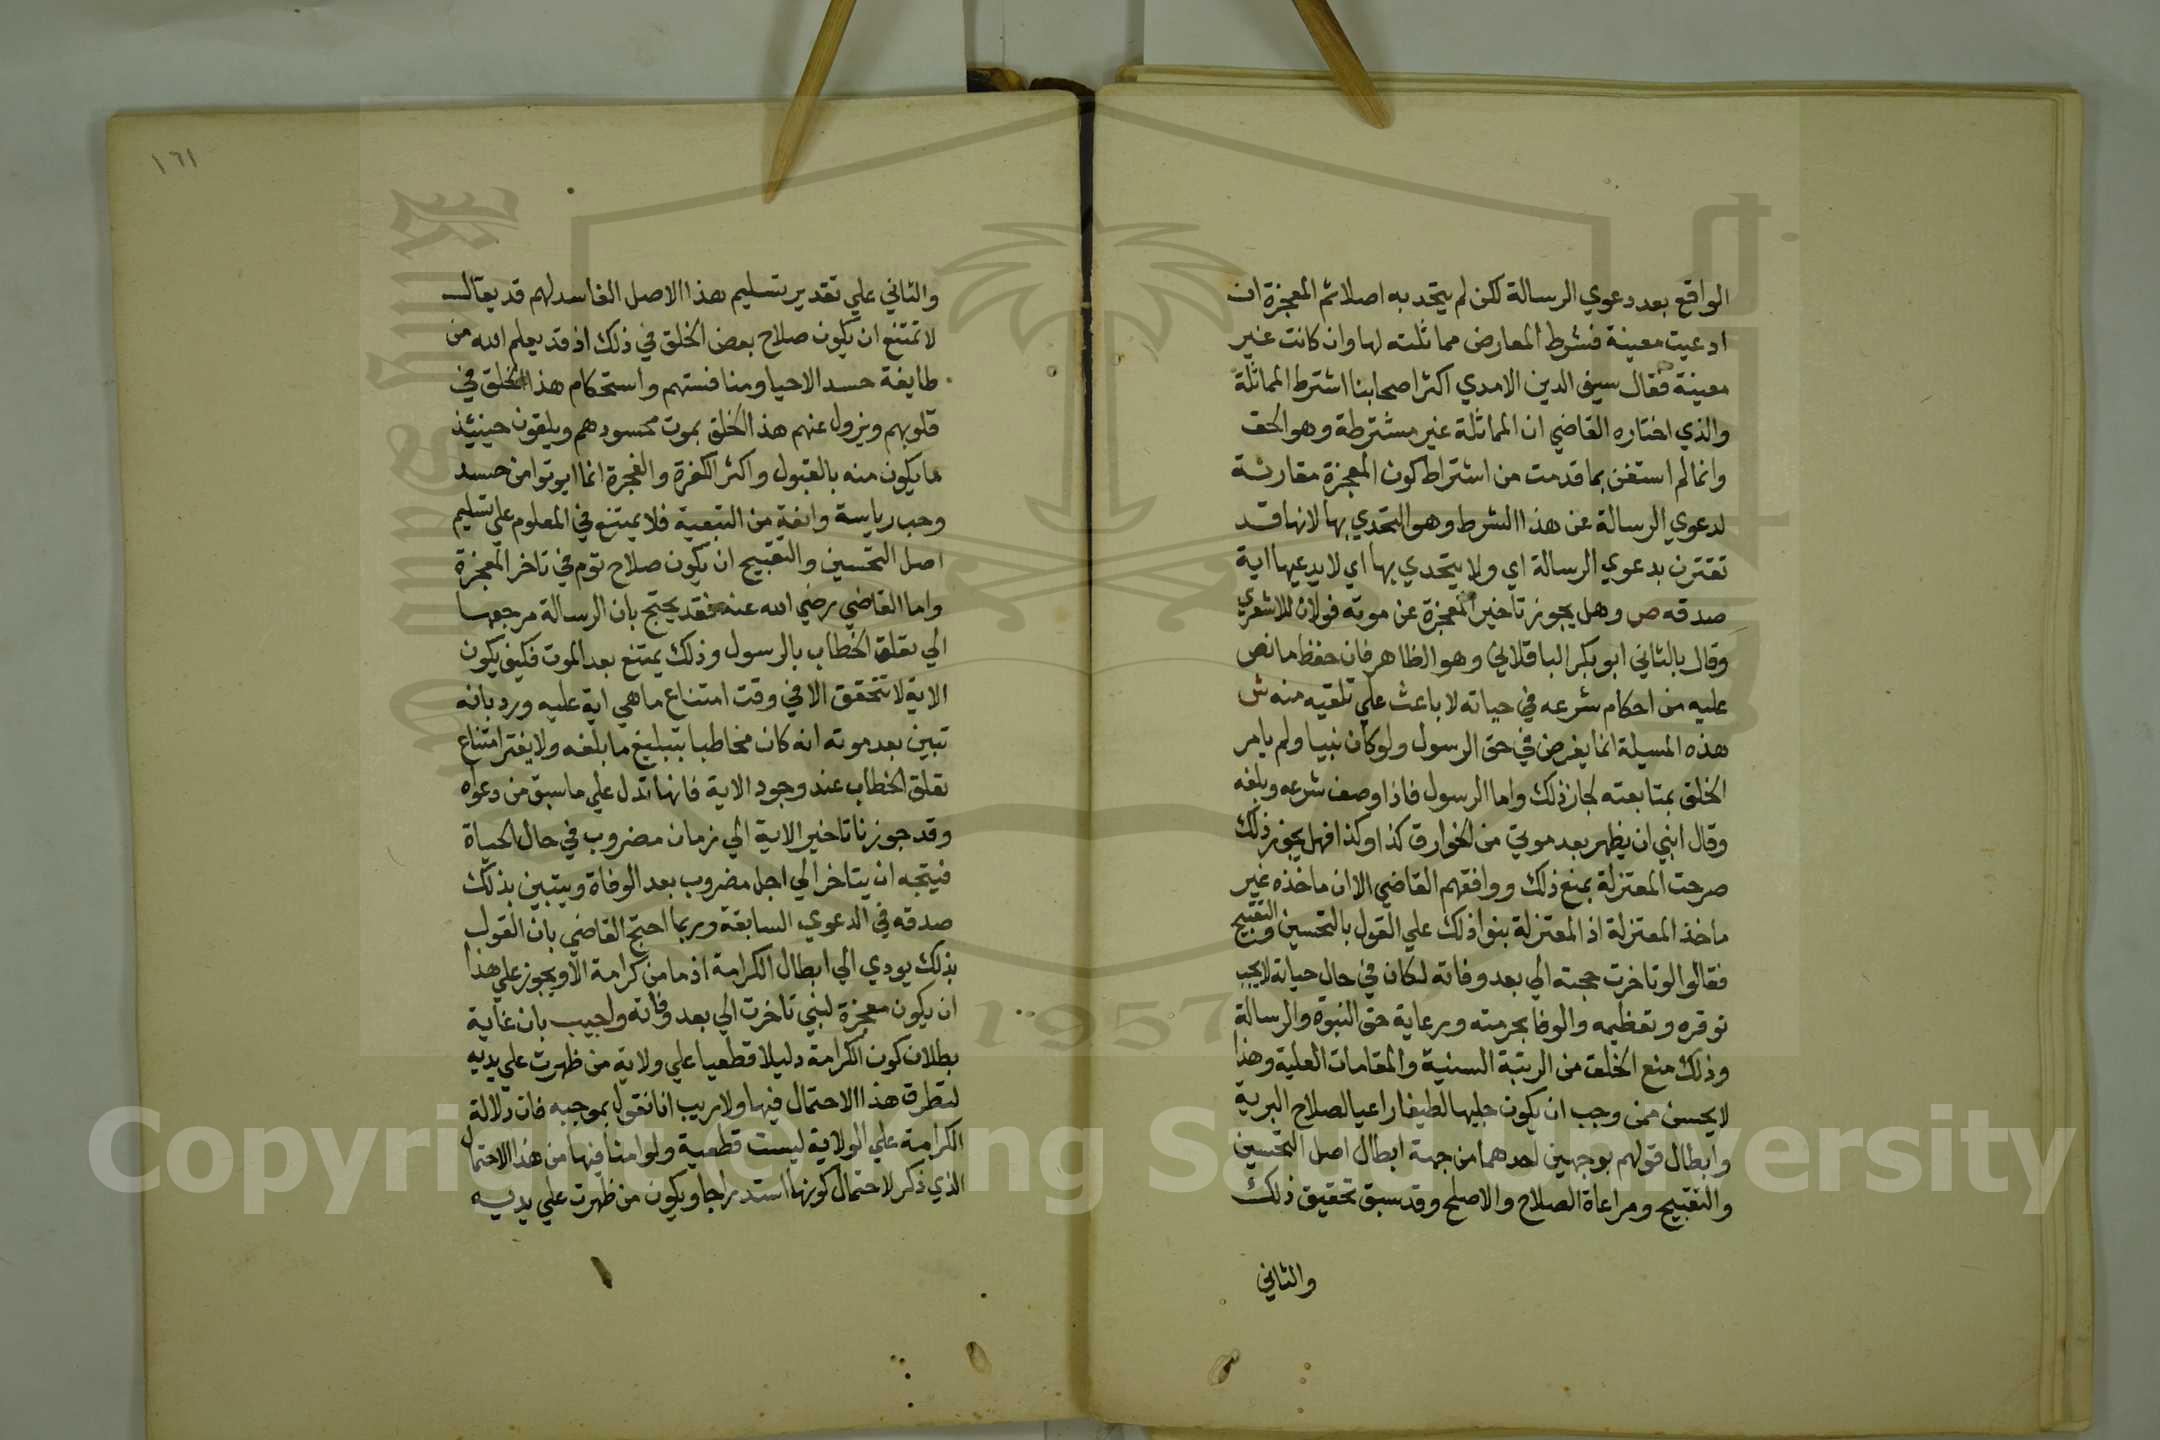 الواقع بعد دعوي الرسالة لكن لم يتحد به اصلا ثم المعجزة ان
ادعيت معينة فشرط المعارض مماثلته لها وان كانت غير
معينة فقال سيف الدين الامدي اكثر اصحابنا اشترط المماثلة
والذي اختاره القاضي ان المماثلة غير مشترطة وهو الحق
وانما لم استغن بما قدمت من اشتراط كون المعجزة مقارنة
لدعوي الرسالة عن هذا الشرط وهو التحدي بها لانها قد
تقترن بدعوي الرسالة اي ولا يتحدي بها اي لا يدعيها اية
صدقه ص وهل يجوز تاخير المعجزة عن موته قولان للاشعري
وقال بالثاني ابو بكر الباقلاني وهو الظاهر فان حفظ ما نص
عليه من احكام شرعه في حياته لا باعث علي تلقيه منه ش
هذه المسيلة انما يفرض في حق الرسول ولو كان نبيا ولم يامر
الخلق بمتابعته لجاز ذلك واما الرسول فاذا وصف شرعه وبلغه
وقال ايتي ان يظهر بعد موتي من الخوارق كذا وكذا فهل يجوز ذلك
صرحت المعتزلة بمنع ذلك ووافقهم القاضي الا ان ماخذه غير
ماخذ المعتزلة اذ المعتزلة بنوا ذلك علي القول بالتحسين والتقبيح
فقالوا لو تاخرت حجته الي بعد وفاته لكان في حال حياته لا يجب
توقره وتعظيمه والوفا بحرمته ورعاية حق النبوة والرسالة
وذلك منع الخلق من الرتبة السنية والمقامات العلية وهذا
لا يحسن ممن وجب ان يكون جليها لطيفا راعيا لصلاح البرية
وابطال قولهم بوجهين احدهما من جهة ابطال اصل التحسين
والتقبيح ومراعاة الصلاح والاصلح وقد سبق تحقيق ذلك
والثاني
١٦١
والثاني علي تقدير تسليم هذا الاصل الفاسد لهم قد يقال
لا تمتنع ان يكون صلاح بعض الخلق في ذلك اذ قد يعلم الله من
طايفة حسد الاحيا ومنافستهم واستحكام هذا الخلق في
قلوبهم ويزول عنهم هذا الخلق بموت محسودهم ويلقون حينئذ
ما يكون منه بالقبول واكثر الكفرة والفجرة انما ايوتوا من حسد
وحب رياسة وانفة من التبعية فلا يمتنع في المعلوم علي تسليم
اصل التحسين والتقبيح ان يكون صلاح قوم في تاخر المعجزة
واما القاضي رضي الله عنه فقد يحتج بان الرسالة مرجعها
الي تعلق الخطاب بالرسول وذلك يمتنع بعد الموت فكيف يكون
الاية لا تتحقق الا في وقت امتناع ما هي اية عليه ورد بانه
تبين بعد موته انه كان مخاطبا بتبليغ ما بلغه ولا يضر امتناع
تعلق الخطاب عند وجود الاية فانها تدل علي ما سبق من دعواه
وقد جوزنا تاخير الاية الي زمان مضروب في حال الحياة
فيتجه ان يتاخر الي اجل مضروب بعد الوفاة ويتبين بذلك
صدقه في الدعوي السابقة وربما احتج القاضي بان القول
بذلك يودي الي ابطال الكرامة اذ ما من كرامة الا ويجوز علي هذا
ان يكون معجزة لنبي تاخرت الي بعد وفاته واجيب بان غاية
بطلان كون الكرامة دليلا قطعيا علي ولاية من ظهرت علي يديه
لتطرق هذا الاحتمال فيها ولا ريب انا نقول بموجبه فان دلالة
الكرامة علي الولاية ليست قطعية ولو امنا فيها من هذا الاحتمال
الذي ذكر لاحتمال كونها استدراجا ويكون من ظهرت علي يديه
Copyright © King Saud University
1957